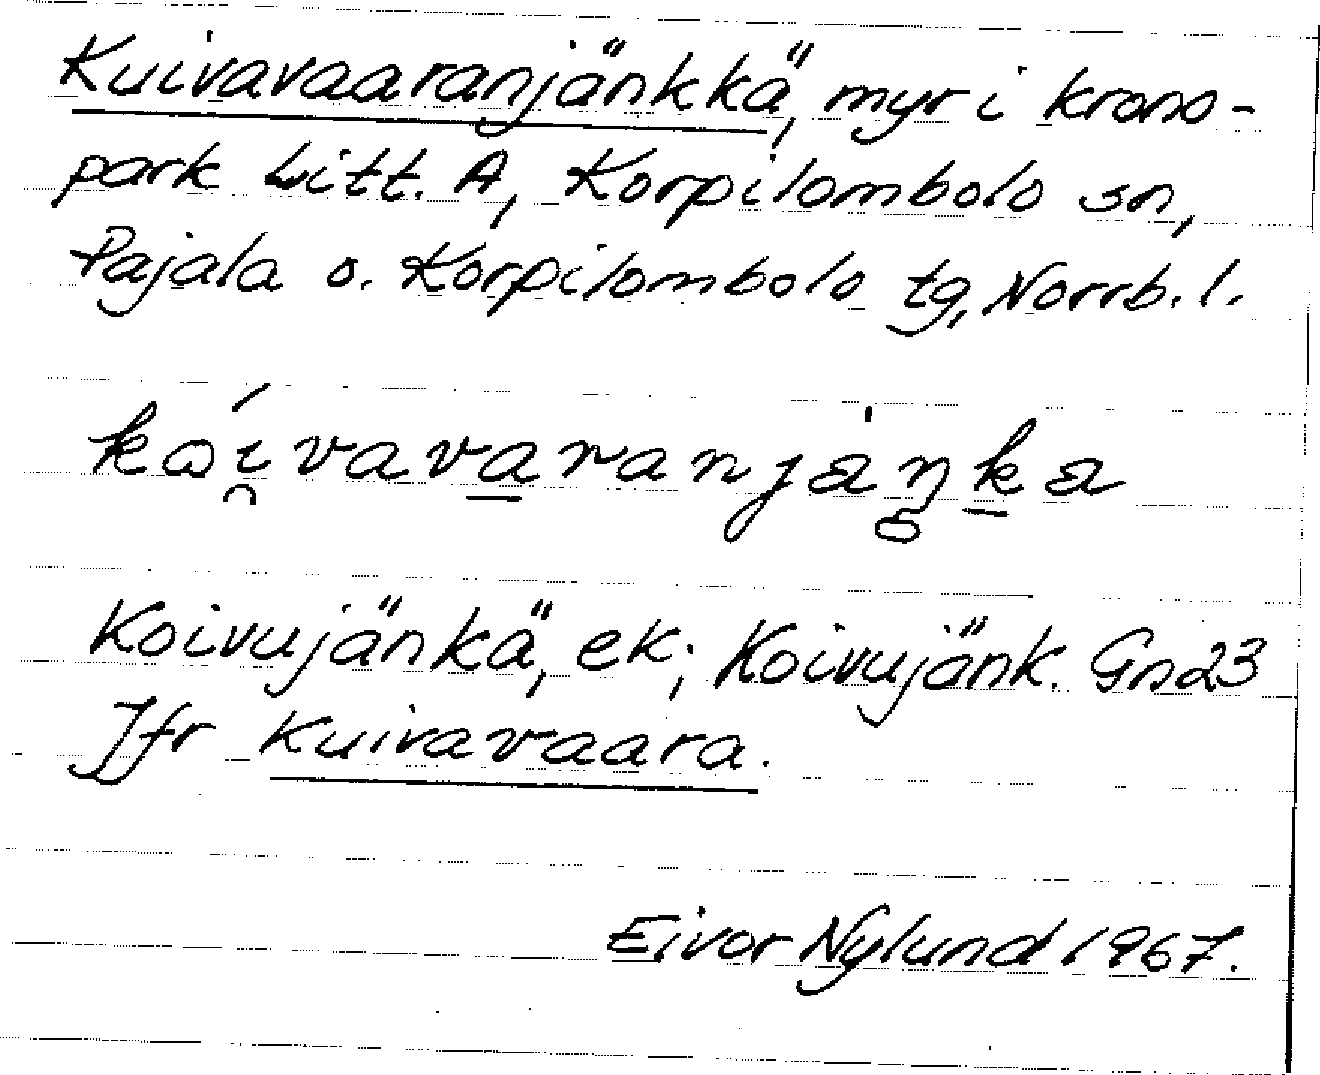 Kuivavaaranjänkkä, myr i krono-
park Litt. A, Korpilombolo sn,
Pajala o. Korpilombolo tg, Norrb. l.
Koivujänkä, ek; Koivujänk. Gn23
Jfr Kuivavaara.
Eivor Nylund 1967.